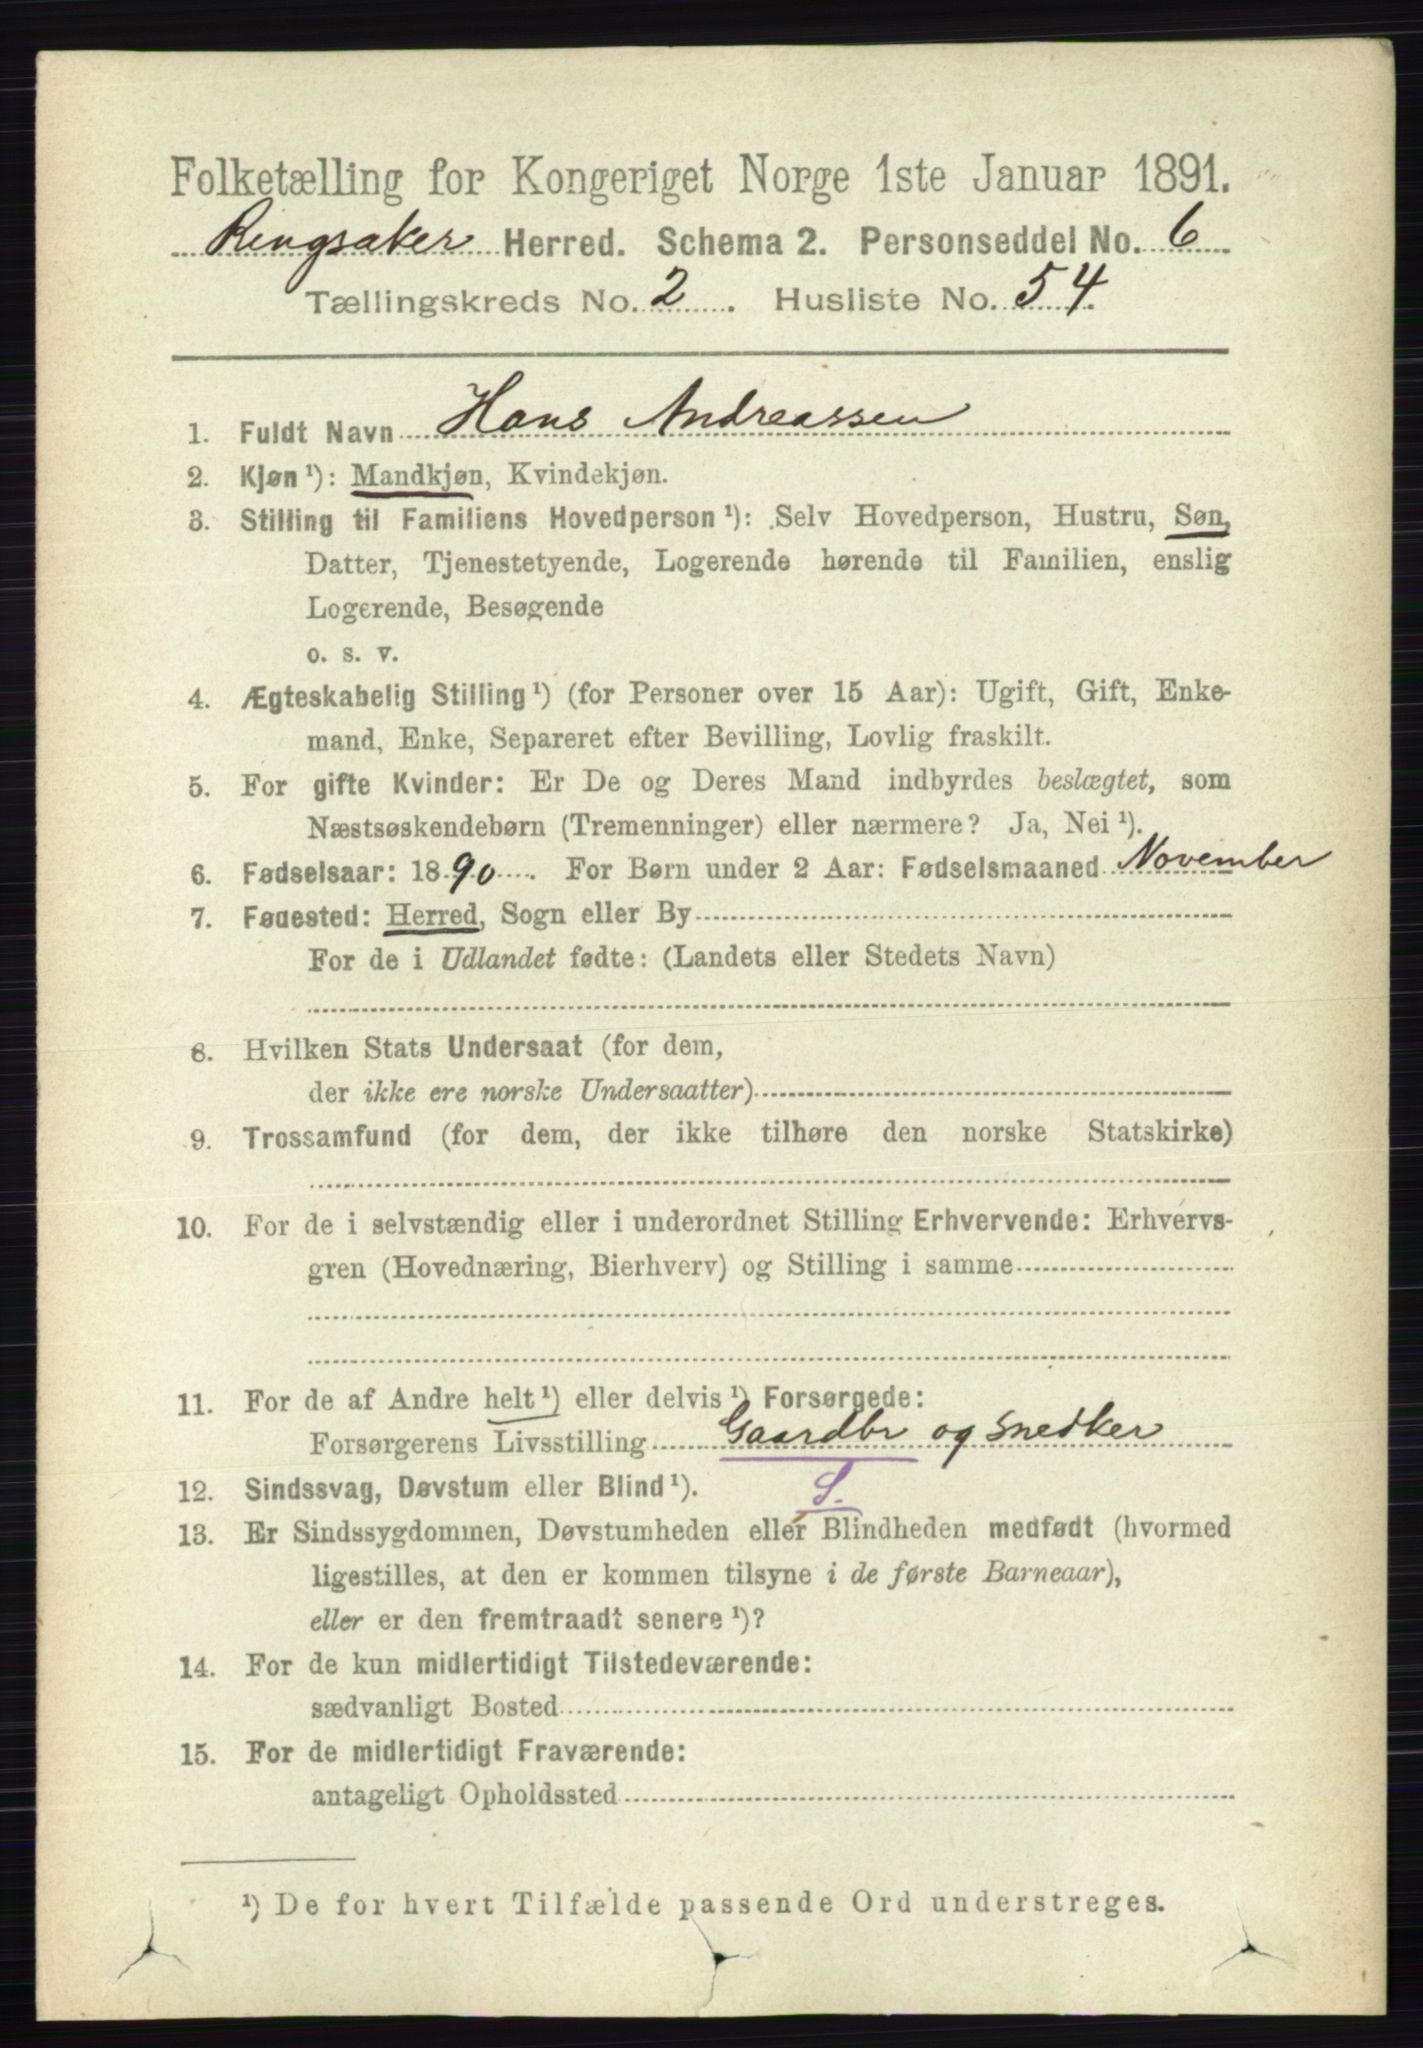 Folketælling for Kongeriget Norge 1ste Januar 1891.
Ringsaker Herred. Schema 2. Personseddel No. 6
Tællingskreds No. 2. Husliste No. 54.
1. Fuldt Navn Hans Andreassen
2. Kjøn¹): Mandkjøn, Kvindekjøn.
3. Stilling til Familiens Hovedperson¹): Selv Hovedperson, Hustru, Søn,
Datter, Tjenestetyende, Logerende hørende til Familien, enslig
Logerende, Besøgende
o. s. v.
4. Ægteskabelig Stilling¹) (for Personer over 15 Aar): Ugift, Gift, Enke-
mand, Enke, Separeret efter Bevilling, Lovlig fraskilt.
5. For gifte Kvinder: Er De og Deres Mand indbyrdes beslægtet, som
Næstsøskendebørn (Tremenninger) eller nærmere? Ja, Nei¹).
6. Fødselsaar: 1890. For Børn under 2 Aar: Fødselsmaaned November
7. Fødested: Herred, Sogn eller By
For de i Udlandet fødte: (Landets eller Stedets Navn)
8. Hvilken Stats Undersaat (for dem,
der ikke ere norske Undersaatter)
9. Trossamfund (for dem, der ikke tilhøre den norske Statskirke)
10. For de i selvstændig eller i underordnet Stilling Erhvervende: Erhvervs-
gren (Hovednæring, Bierhverv) og Stilling i samme
11. For de af Andre helt¹) eller delvis¹) Forsørgede:
Forsørgerens Livsstilling Gaardbr og Snedker
12. Sindssvag, Døvstum eller Blind¹). S.
13. Er Sindssygdommen, Døvstumheden eller Blindheden medfødt (hvormed
ligestilles, at den er kommen tilsyne i de første Barneaar),
eller er den fremtraadt senere¹)?
14. For de kun midlertidigt Tilstedeværende:
sædvanligt Bosted
15. For de midlertidigt Fraværende:
antageligt Opholdssted
¹) De for hvert Tilfælde passende Ord understreges.